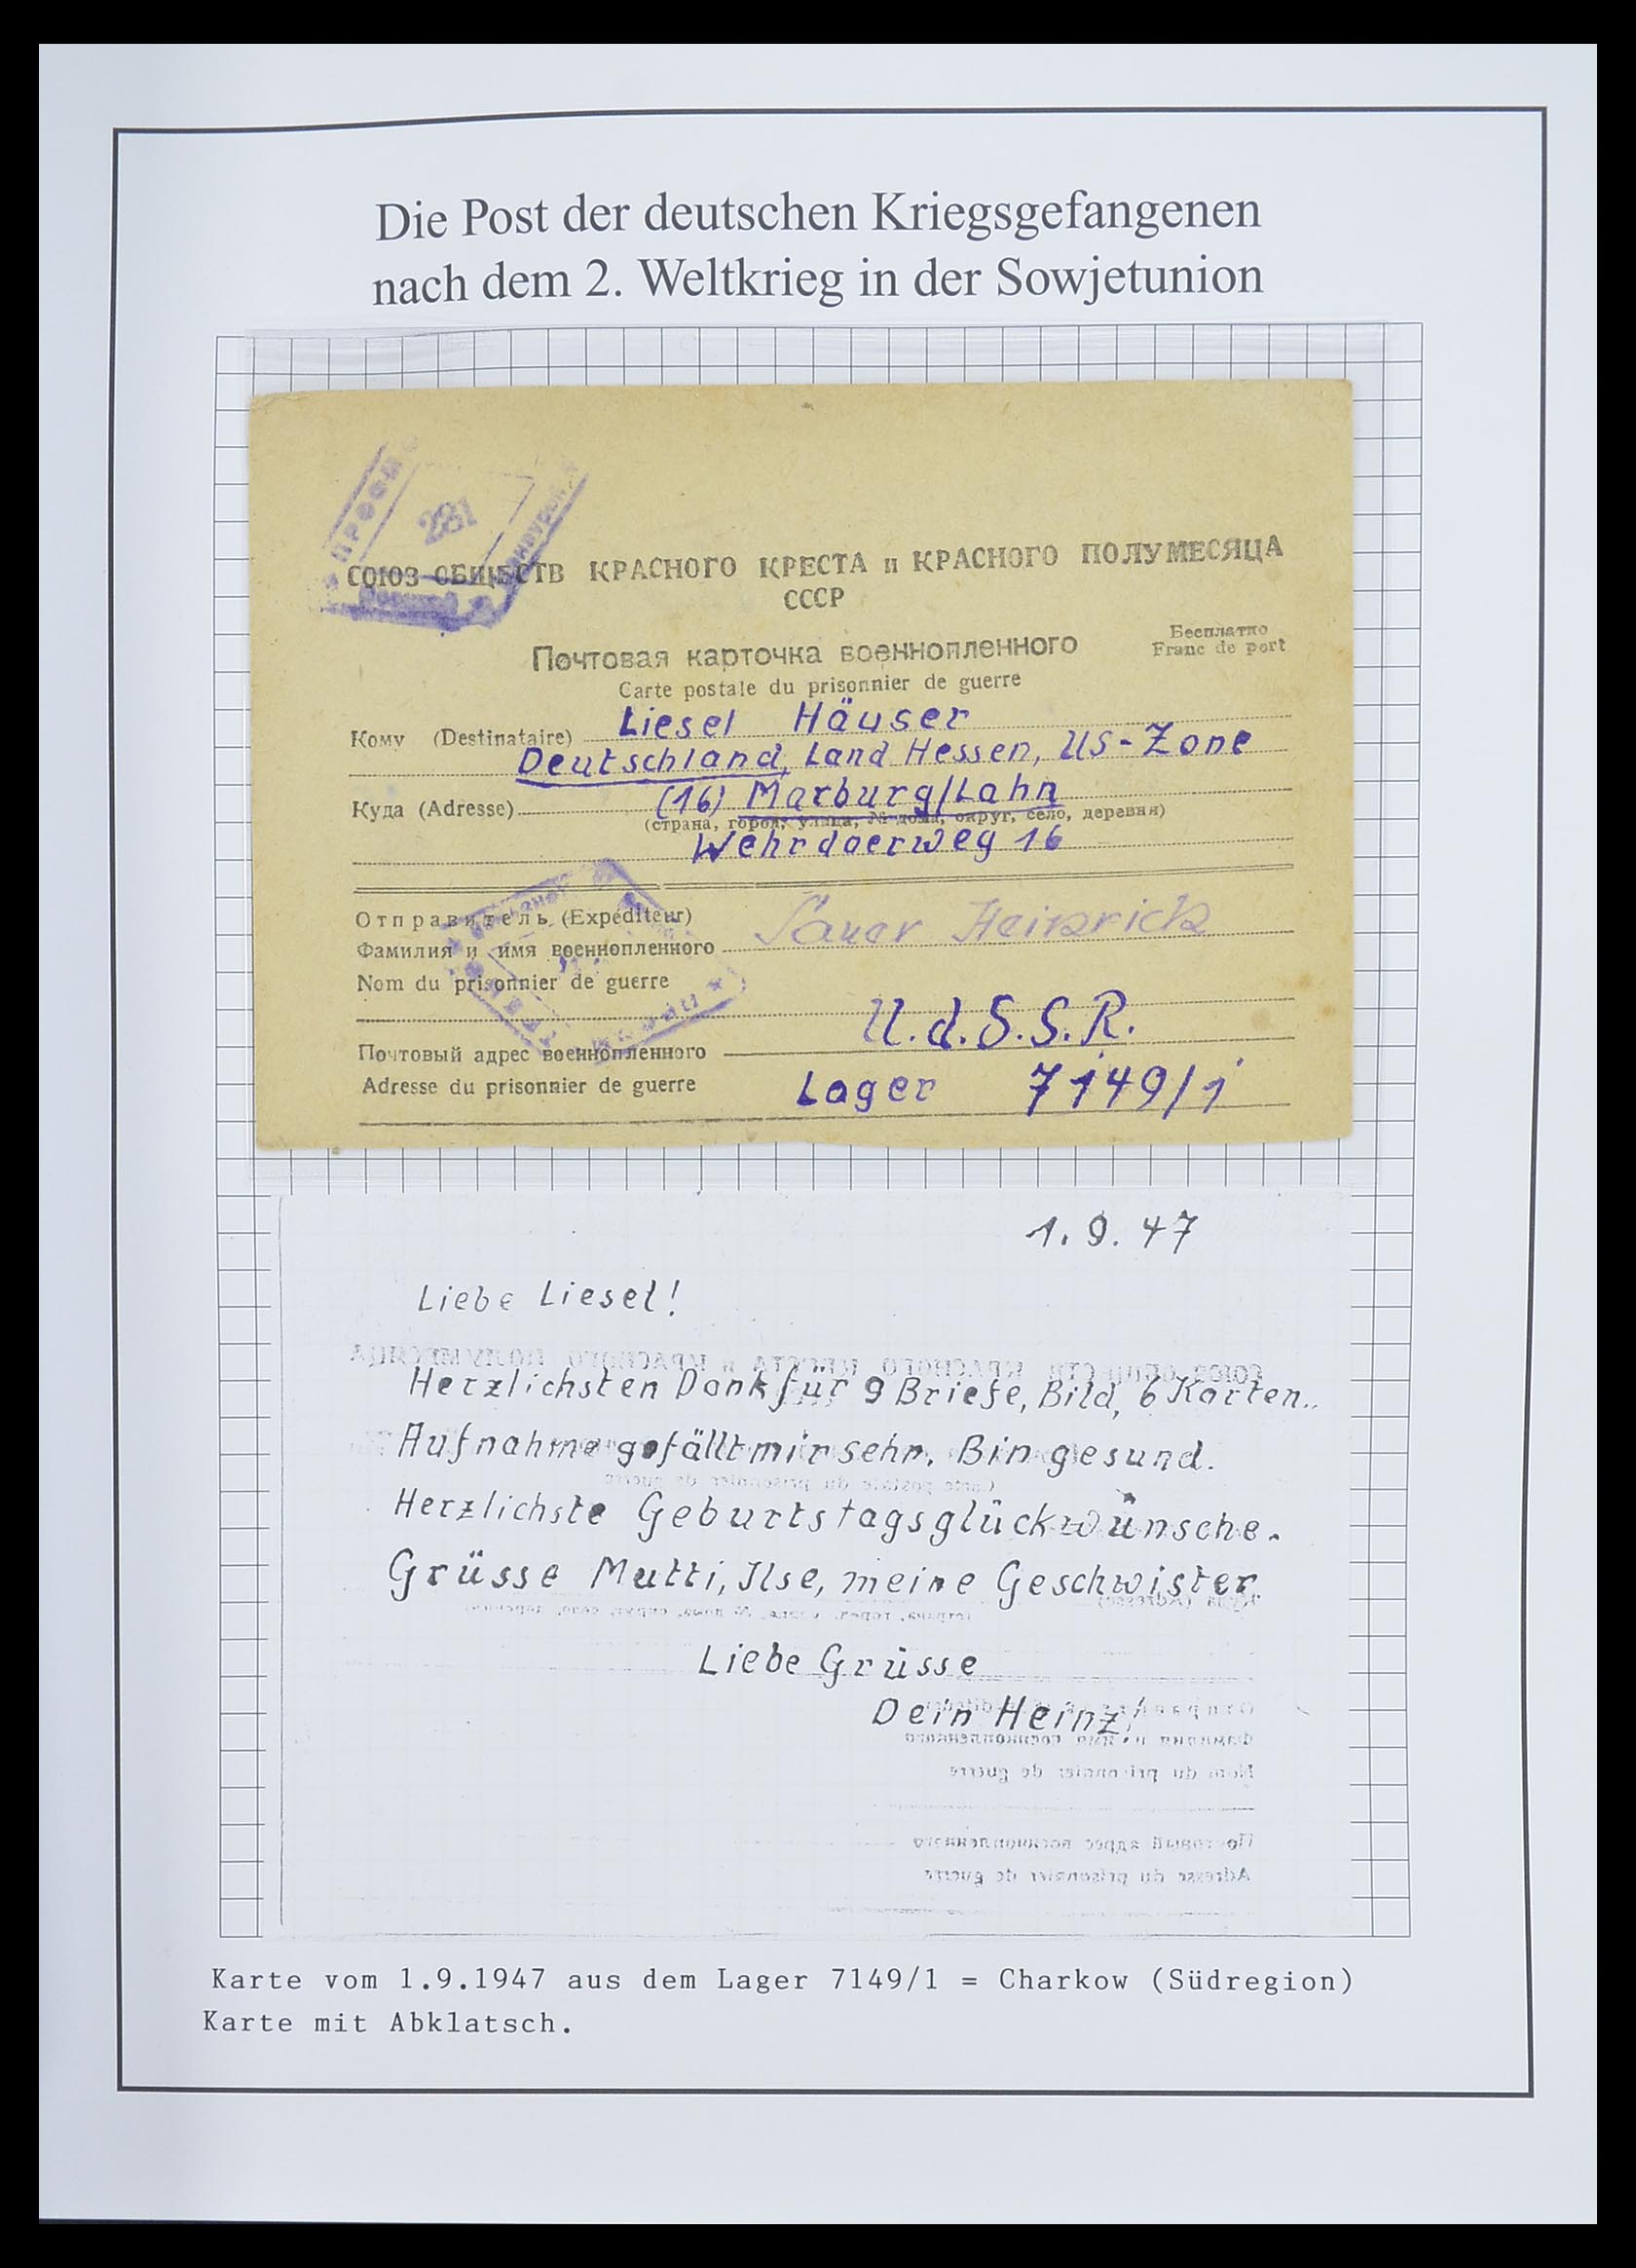 Die Post der deutschen Kriegsgefangenen
nach dem 2. Weltkrieg in der Sowjetunion
СОЮЗ ОБЩЕСТВ КРАСНОГО КРЕСТА и КРАСНОГО ПОЛУМЕСЯЦА
СССР
Почтовая карточка военнопленного
Бесплатно
Franc de port
Carte postale du prisonnier de guerre
Кому (Destinataire) Liesel Häuser
Deutschland, Land Hessen, US-Zone
Куда (Adresse) (16) Marburg/Lahn
(страна, город, улица, № дома, округ, село, деревня)
Wehrdaerweg 16
Отправитель (Expéditeur)
Фамилия и имя военнопленного Sauer Heinrich
Nom du prisonnier de guerre
U.d.S.S.R.
Почтовый адрес военнопленного
Adresse du prisonnier de guerre Lager 7149/1
1.9.47
Liebe Liesel!
Herzlichsten Dank für 9 Briefe, Bild, 6 Karten..
Aufnahme gefällt mir sehr. Bin gesund.
Herzlichste Geburtstagsglückwünsche.
Grüsse Mutti, Ilse, meine Geschwister.
Liebe Grüsse
Dein Heinz!
Karte vom 1.9.1947 aus dem Lager 7149/1 = Charkow (Südregion)
Karte mit Abklatsch.